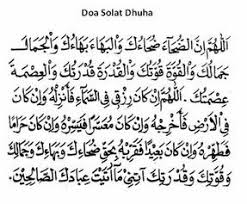 Doa Solat Dhuha
اَللّٰهُمَّ اِنَّ الضُّحَآءَ ضُحَاءُكَ وَالْبَهَاءَ بَهَاءُكَ وَالْجَمَالَ
جَمَالُكَ وَالْقُوَّةَ قُوَّتُكَ وَالْقُدْرَةَ قُدْرَتُكَ وَالْعِصْمَةَ
عِصْمَتُكَ. اَللّٰهُمَّ اِنْ كَانَ رِزْقِي فِي السَّمَآءِ فَأَنْزِلْهُ وَاِنْ كَانَ
فِي الْاَرْضِ فَأَخْرِجْهُ وَاِنْ كَانَ مُعَسَّرًا فَيَسِّرْهُ وَاِنْ كَانَ حَرَامًا
فَطَهِّرْهُ وَاِنْ كَانَ بَعِيْدًا فَقَرِّبْهُ بِحَقِّ ضُحَاءِكَ وَبَهَاءِكَ وَجَمَالِكَ
وَقُوَّتِكَ وَقُدْرَتِكَ آتِنِي مَآ اَتَيْتَ عِبَادَكَ الصَّالِحِيْنَ.